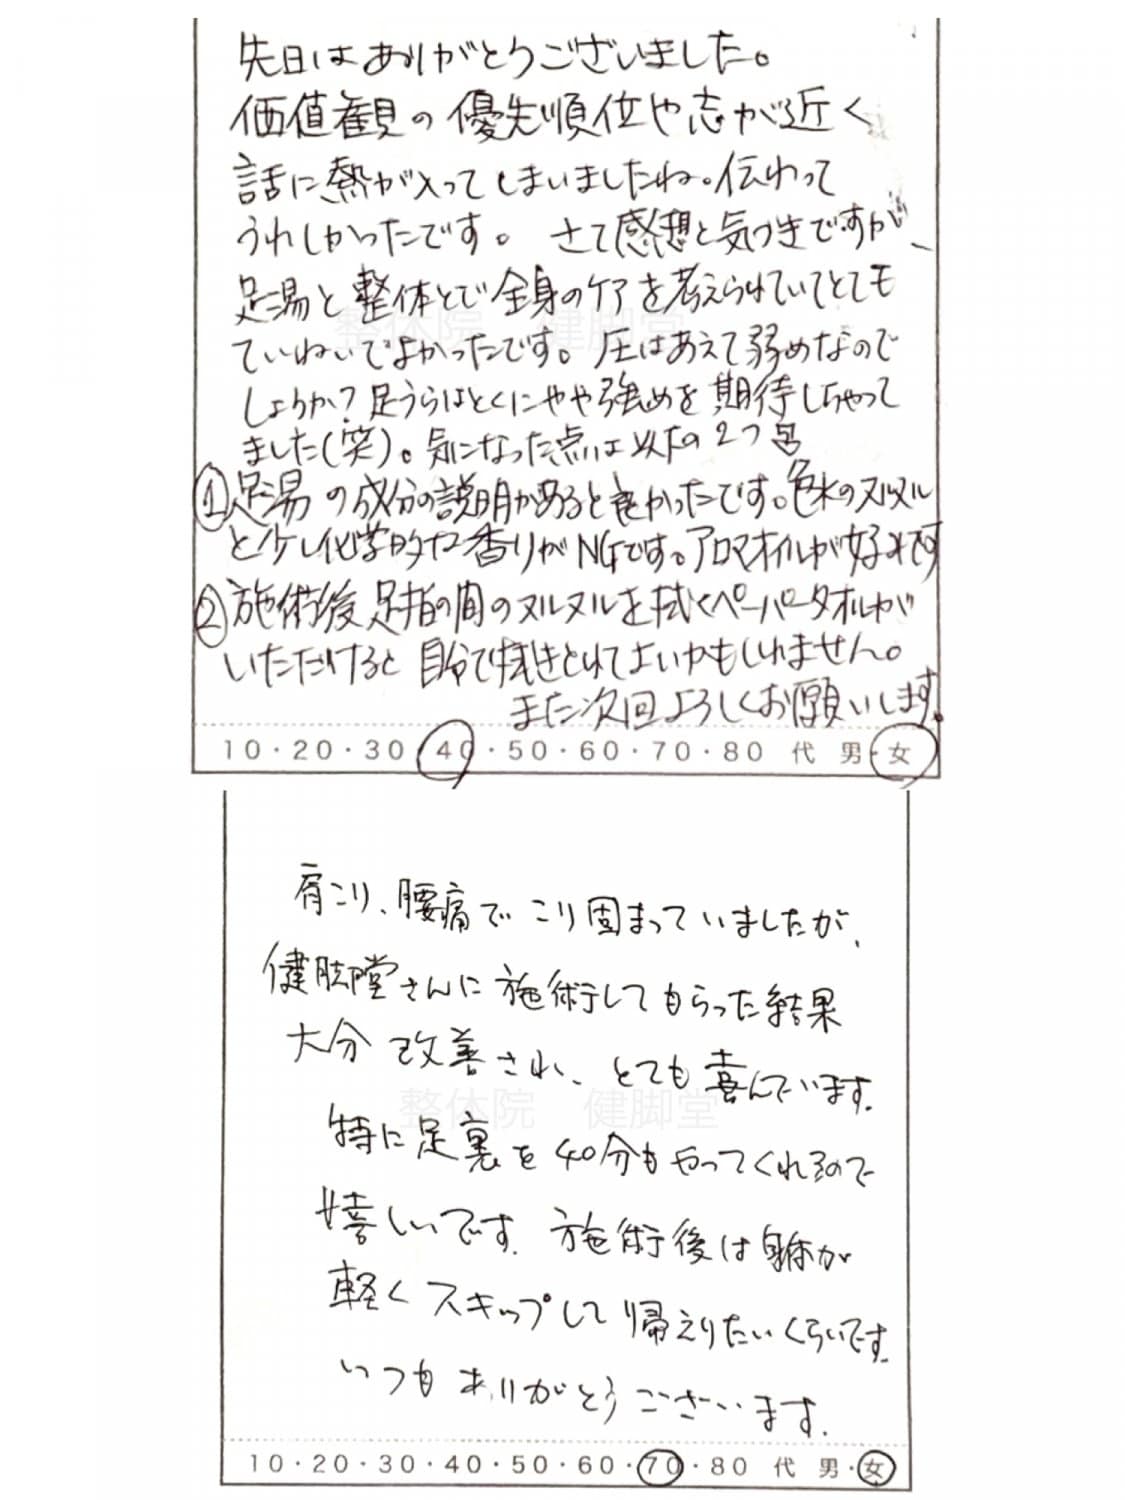 先日はありがとうございました。
価値観の優先順位や志が近く
話に熱が入ってしまいましたね。伝わって
うれしかったです。 さて感想と気づきですが、
足湯と整体とで全身のケアを考えられていてとても
整体院 健脚堂
ていねいでよかったです。圧はあえて弱めなので
しょうか?足うらはとくにやや強めを期待しちゃって
ました(笑)。気になった点は以下の2つ
①足湯の成分の説明があると良かったです。色水のヌルヌル
と少し化学的な香りがNGです。アロマオイルが好みです
②施術後足指の間のヌルヌルを拭くペーパータオルが
いただけると自分で拭きとれてよいかもしれません。
また次回よろしくお願いします。
10・20・30・40・50・60・70・80 代 男・女
肩こり、腰痛でこり固まっていましたが、
健脚堂さんに施術してもらった結果
大分改善され、とても喜んでいます。
整体院 健脚堂
特に足裏を40分もやってくれるので
嬉しいです。施術後は身体が
軽くスキップして帰えりたいくらいです。
いつもありがとうございます。
10・20・30・40・50・60・70・80 代 男・女